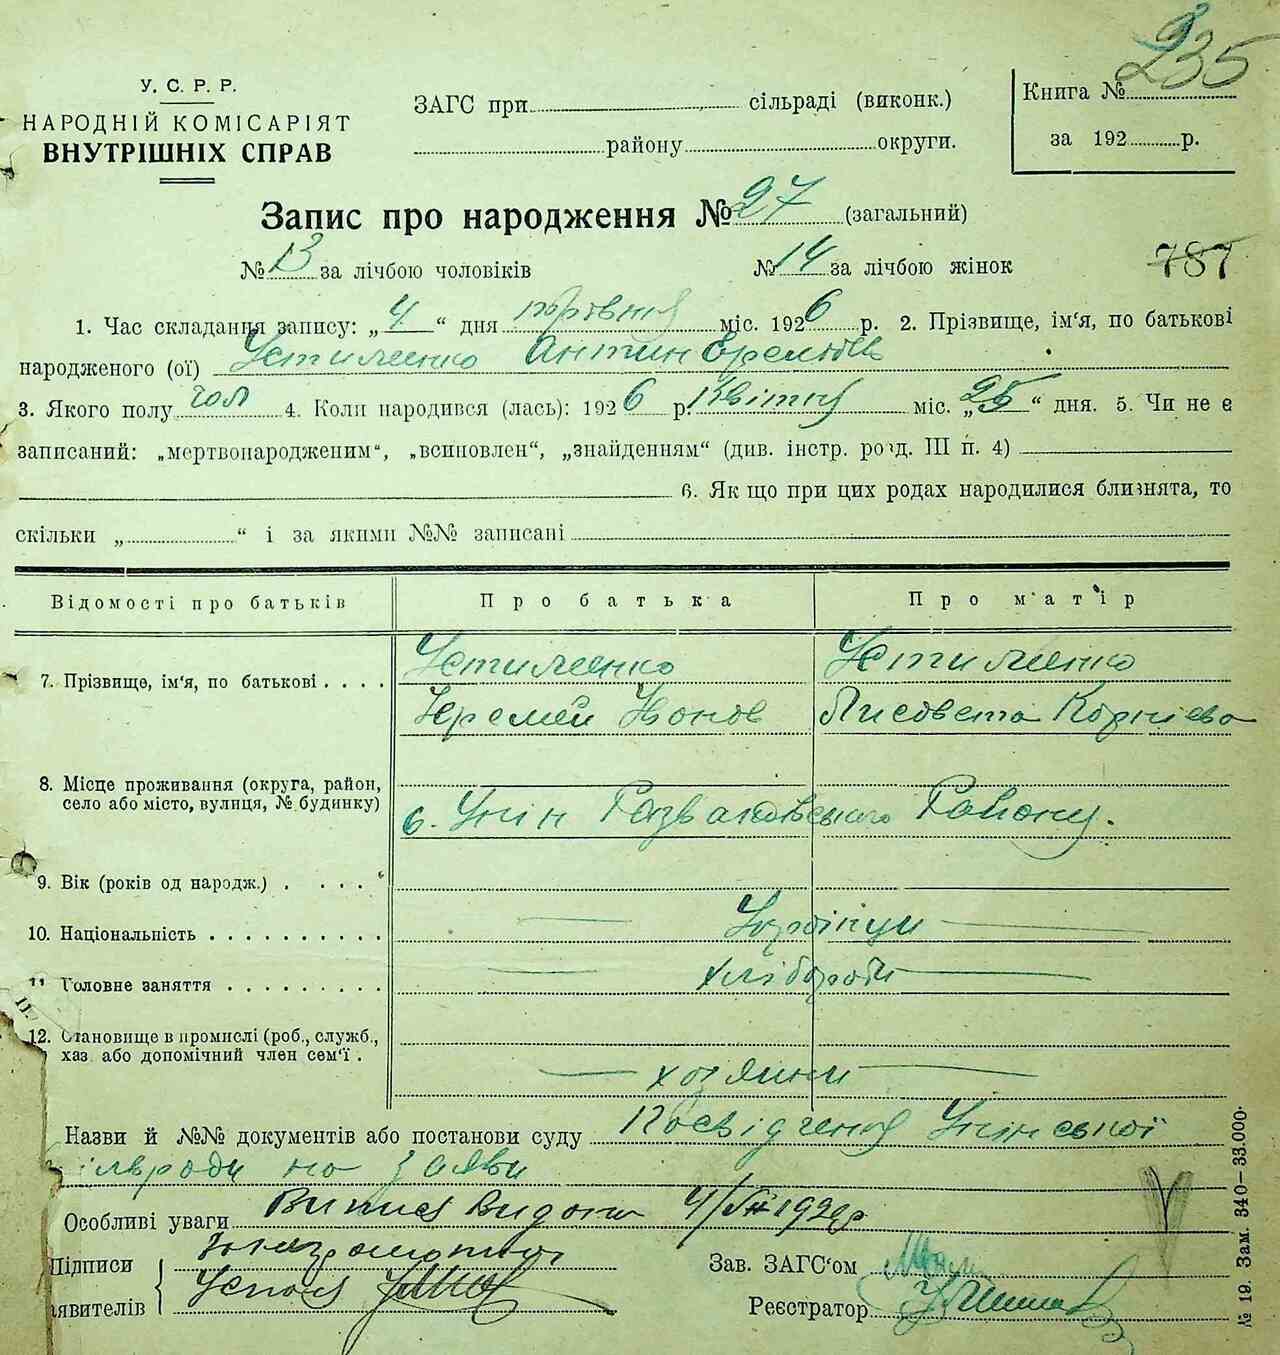 235
У. С. Р. Р.
НАРОДНІЙ КОМІСАРІЯТ
ВНУТРІШНІХ СПРАВ
ЗАГС при сільраді (виконк.)
району округи.
Книга №
за 192 р.
Запис про народження № 27 (загальний)
№ 13 за лічбою чоловіків № 14 за лічбою жінок 787
1. Час складання запису: „4“ дня міс. 1926 р. 2. Прізвище, ім'я, по батькові
народженого (ої) Устименко Антин
3. Якого полу чол 4. Коли народився (лась): 1926 р. Квітня міс. „25“ дня. 5. Чи не є
записаний: „мертвонародженим“, „всиновлен“, „знайденням“ (див. інстр. розд. III п. 4)
6. Як що при цих родах народилися близнята, то
скільки „ “ і за якими №№ записані
Відомості про батьків Про батька Про матір
7. Прізвище, ім'я, по батькові . . . . Устименко Устименко
Еремей Конов Лисовета Корнієва
8. Місце проживання (округа, район,
село або місто, вулиця, № будинку)
с. Унін Району.
9. Вік (років од народж.) . . . . .
10. Національність . . . . . . . . . . Українци
11 Головне заняття . . . . . . . . . хлібороби
12. Становище в промислі (роб., служб.,
хаз або допомічний член сем'ї .
хозяини
Назви й №№ документів або постанови суду Посвідчення Унінської
сільради по заяви
Особливі уваги Випись Видана 4/VII 192
Підписи
заявителів
Неграмотний
Зав. ЗАГС'ом
Реєстратор
№ 19. Зам. 340—33.000.